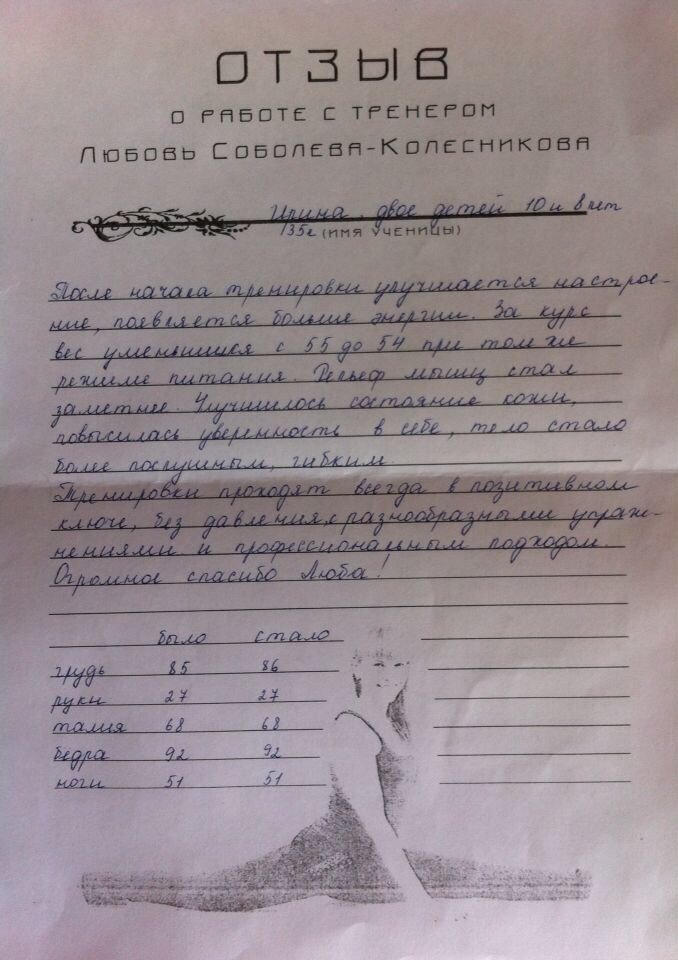 ОТЗЫВ
О РАБОТЕ С ТРЕНЕРОМ
ЛЮБОВЬ СОБОЛЕВА-КОЛЕСНИКОВА
Ирина, двое детей 10 и 8 лет
35л (ИМЯ УЧЕНИЦЫ)
После начала тренировки улучшается настрое-
ние, появляется больше энергии. За курс
вес уменьшился с 55 до 54 при том же
режиме питания. Рельеф мышц стал
заметнее. Улучшилось состояние кожи,
повысилась уверенность в себе, тело стало
более послушным, гибким.
Тренировки проходят всегда в позитивном
ключе, без давления, с разнообразными упраж-
нениями и профессиональным подходом.
Огромное спасибо Люба!
было стало
грудь 85 86
руки 27 27
талия 68 68
бедра 92 92
ноги 51 51